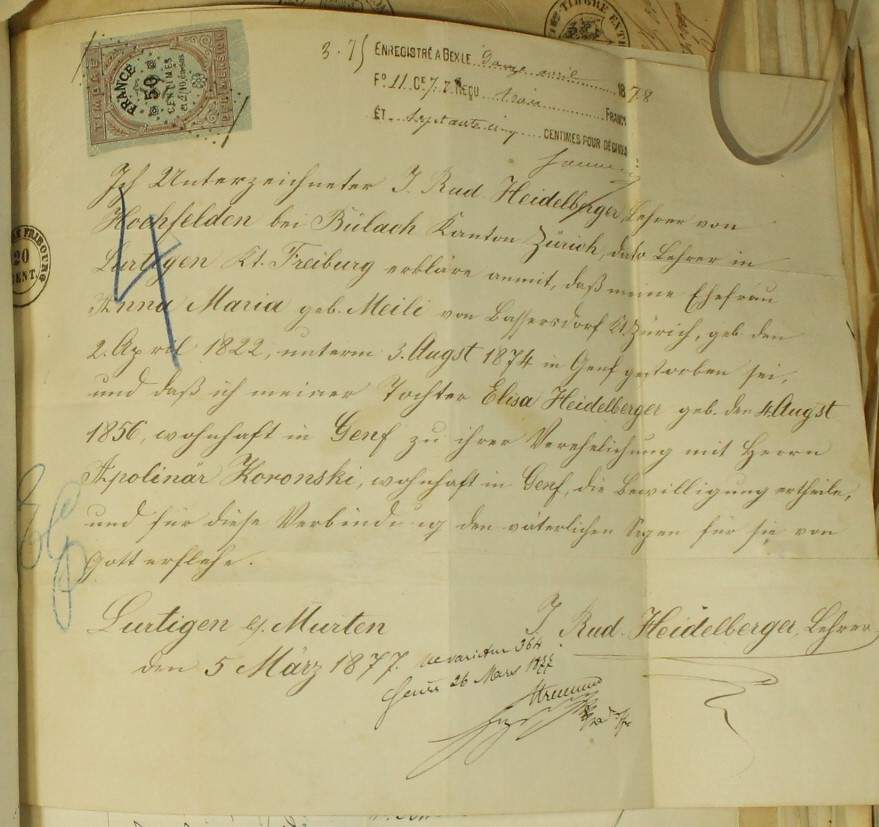 TIMBRE EXT
TIMBRE
DIMENSION
FRANCE
50
CENTIMES
et 2/10 en sus
3.75
ENREGISTRÉ A BEX LE douze avril 1878
Fº 11 CE 7.7. REÇU trois FRANCS
ET septante cinq CENTIMES POUR DÉCIMES
Ich Unterzeichneter J. Rud Heidelberger, Lehrer von
Hochfelden bei Bülach Kanton Zürich, dato Lehrer in
Lurtigen Kt. Freiburg erkläre anmit, daß meine Ehefrau
Anna Maria geb. Meili von Bassersdorf Kt. Zürich, geb. den
2. April 1822, unterm 3. Augst 1874 in Genf gestorben sei,
und daß ich meiner Tochter Elisa Heidelberger geb. den 4. Augst
1856, wohnhaft in Genf zu ihrer Verehelichung mit Herrn
Apolinär Koronski, wohnhaft in Genf, die Bewilligung ertheile,
und für diese Verbindung den väterlichen Segen für sie von
Gott erflehe.
4
FRIBOURG
20
CENT.
Lurtigen b/. Murten
J. Rud. Heidelberger, Lehrer
den 5 März 1877.
Ne varietur
26 Mars 1877